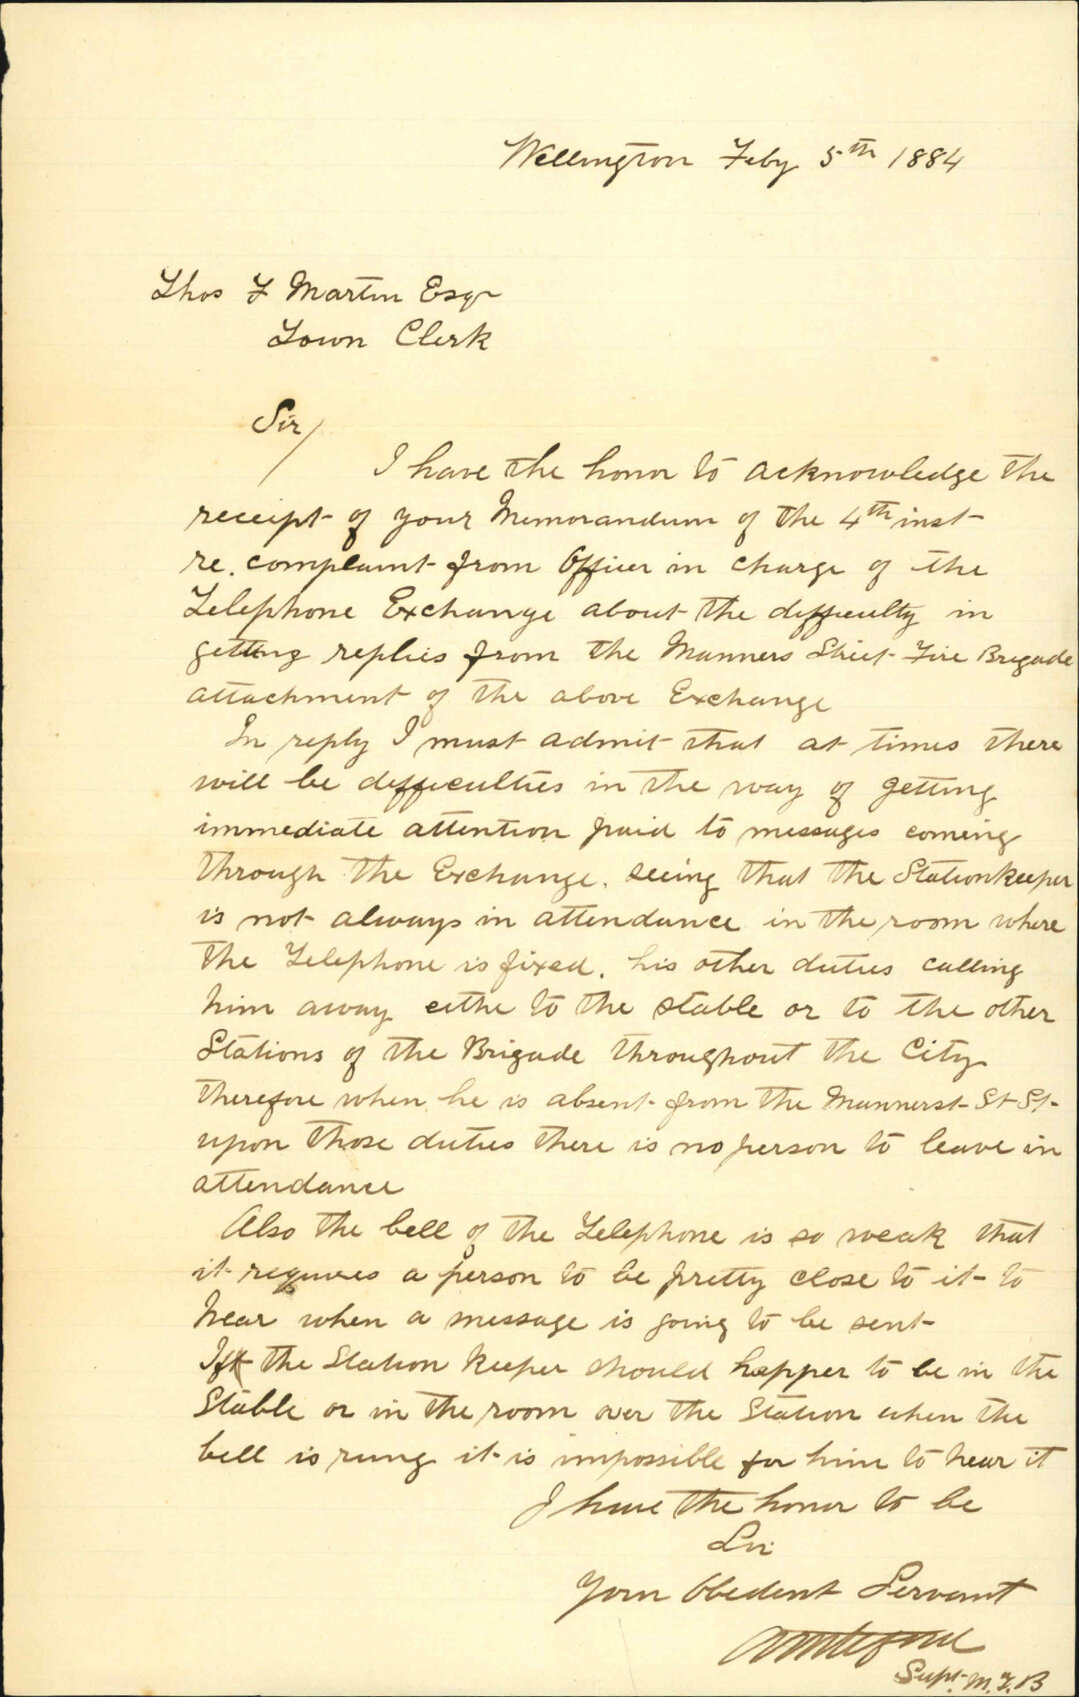 Wellington Feby 5th 1884
Thos F Martin Esqr
Town Clerk
Sir/
I have the honor to acknowledge the
receipt of your Memorandum of the 4th inst
re. complaint from Officer in charge of the
Telephone Exchange about the difficulty in
getting replies from the Manners Street Fire Brigade
attachment of the above Exchange
In reply I must admit that at times there
will be difficulties in the way of getting
immediate attention paid to messages coming
through the Exchange. seeing that the Stationkeeper
is not always in attendance in the room where
the Telephone is fixed. his other duties calling
him away eithe to the stable or to the other
Stations of the Brigade throughout the City
therefore when he is absent from the Mannerst St St
upon those duties there is no person to leave in
attendance
Also the bell of the Telephone is so weak that
it requires a person to be pretty close to it to
hear when a message is going to be sent
If the Station Keeper should happer to be in the
Stable or in the room over the Station when the
bell is rung it is impossible for him to hear it
I have the honor to be
Sir
Your Obedent Servant
Supt. M.F.B